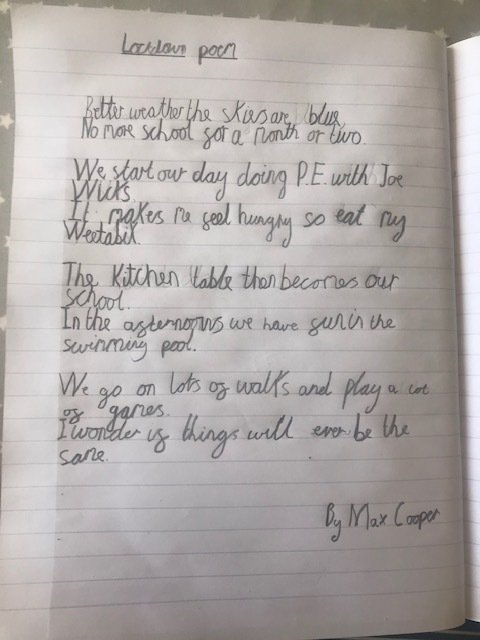 Lockdown poem
Better weather the skies are blue,
No more school for a month or two.
We start our day doing P.E. with Joe
Wicks
It makes me feel hungry so eat my
Weetabix.
The Kitchen table then becomes our
school.
In the afternoons we have fun in the
swimming pool.
We go on lots of walks and play a lot
of games.
I wonder if things will ever be the
same.
By Max Cooper